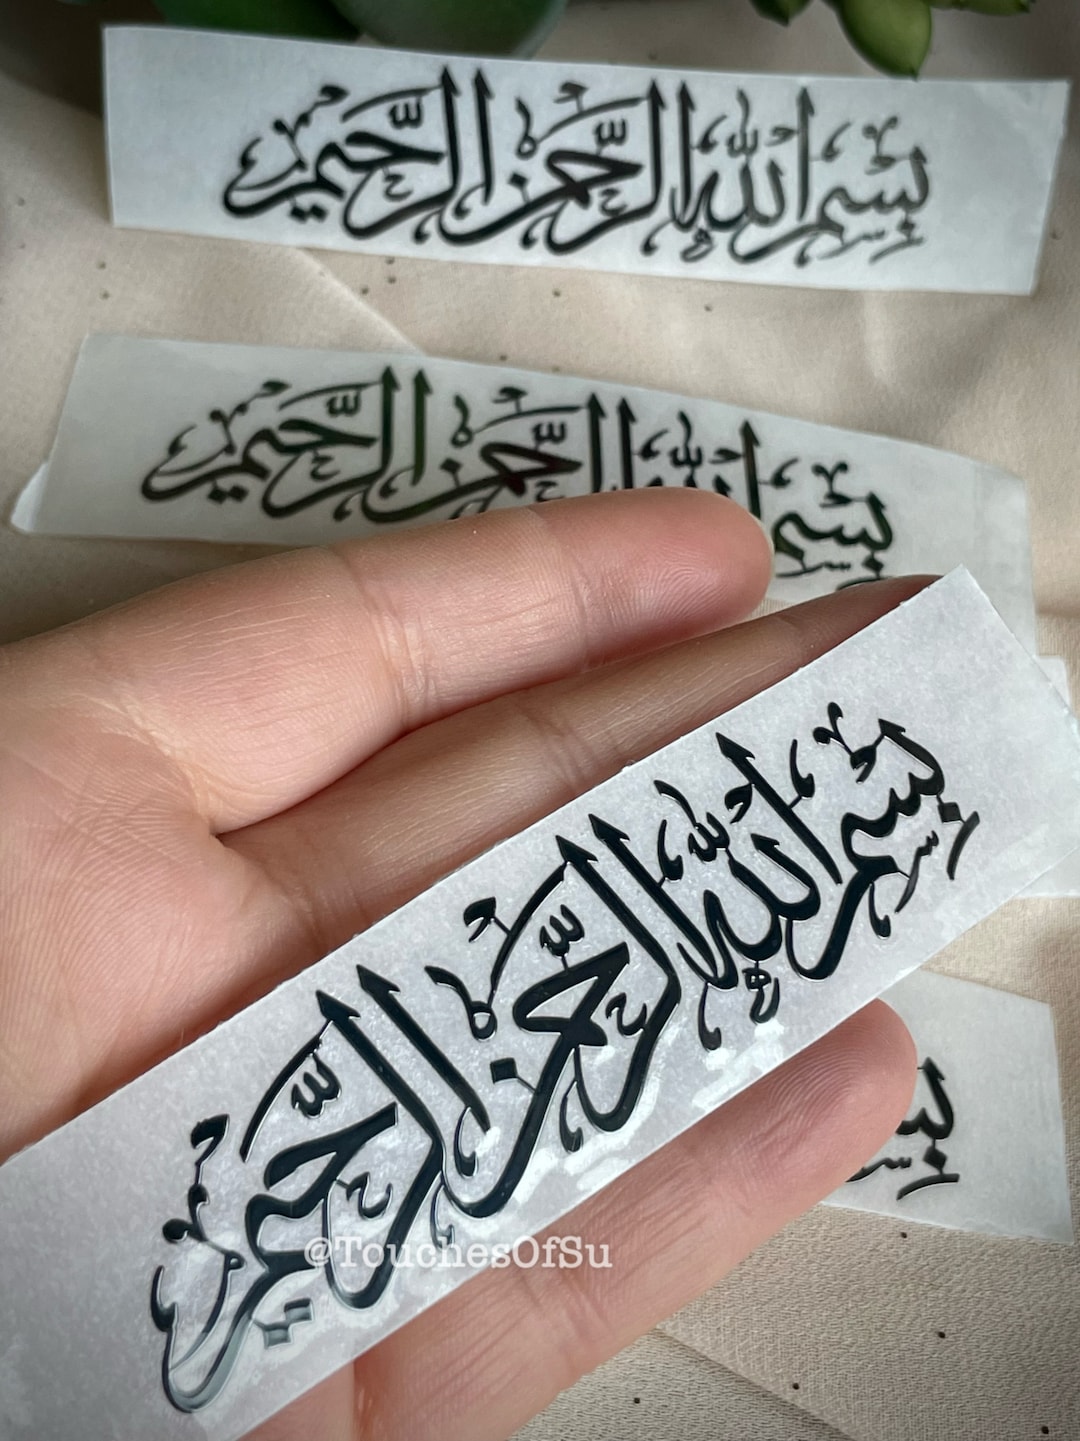 بِسْمِ اللَّهِ الرَّحْمَٰنِ الرَّحِيمِ
بِسْمِ اللَّهِ الرَّحْمَٰنِ الرَّحِيمِ
بِسْمِ اللَّهِ الرَّحْمَٰنِ الرَّحِيمِ
بس
@TouchesOfSu